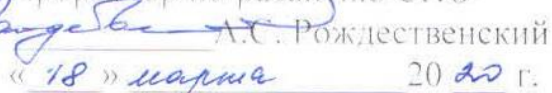 А.С. Рождественский
« 18 » марта 20 20 г.